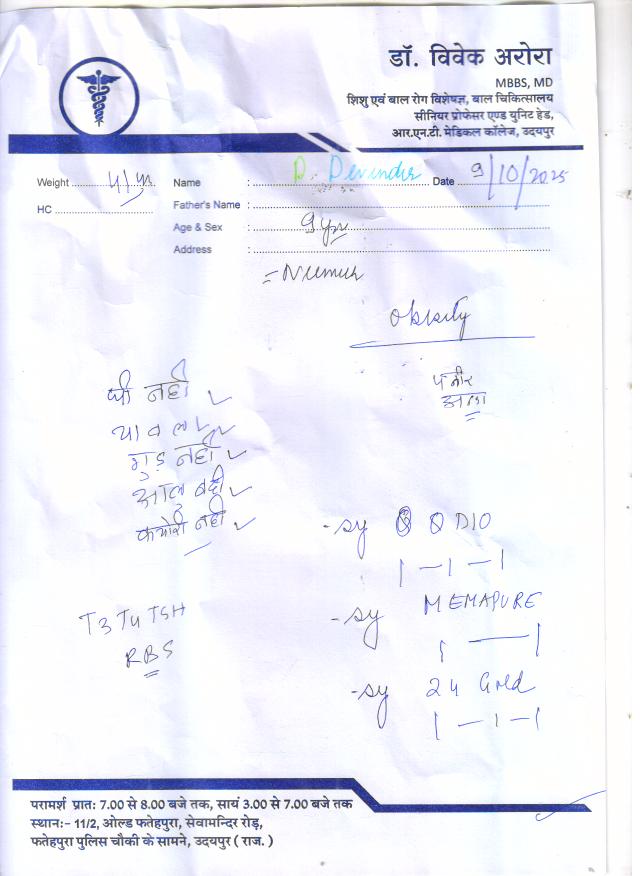 डॉ. विवेक अरोरा
MBBS, MD
शिशु एवं बाल रोग विशेषज्ञ, बाल चिकित्सालय
सीनियर प्रोफेसर एण्ड युनिट हेड,
आर.एन.टी. मेडिकल कॉलेज, उदयपुर
Weight Name : D. Devinder Date 9/10/2025
HC Father's Name :
Age & Sex : 9 yr
Address :
Obesity
घी नहीं
पनीर
गुड़ नहीं
आलू नहीं
कचोरी नहीं
- sy DIO
| — | — |
T3 T4 TSH
- sy MEMAPURE
RBS
- sy 24 Gold
| — | — |
परामर्श प्रातः 7.00 से 8.00 बजे तक, सायं 3.00 से 7.00 बजे तक
स्थान:- 11/2, ओल्ड फतेहपुरा, सेवामन्दिर रोड़,
फतेहपुरा पुलिस चौकी के सामने, उदयपुर ( राज. )